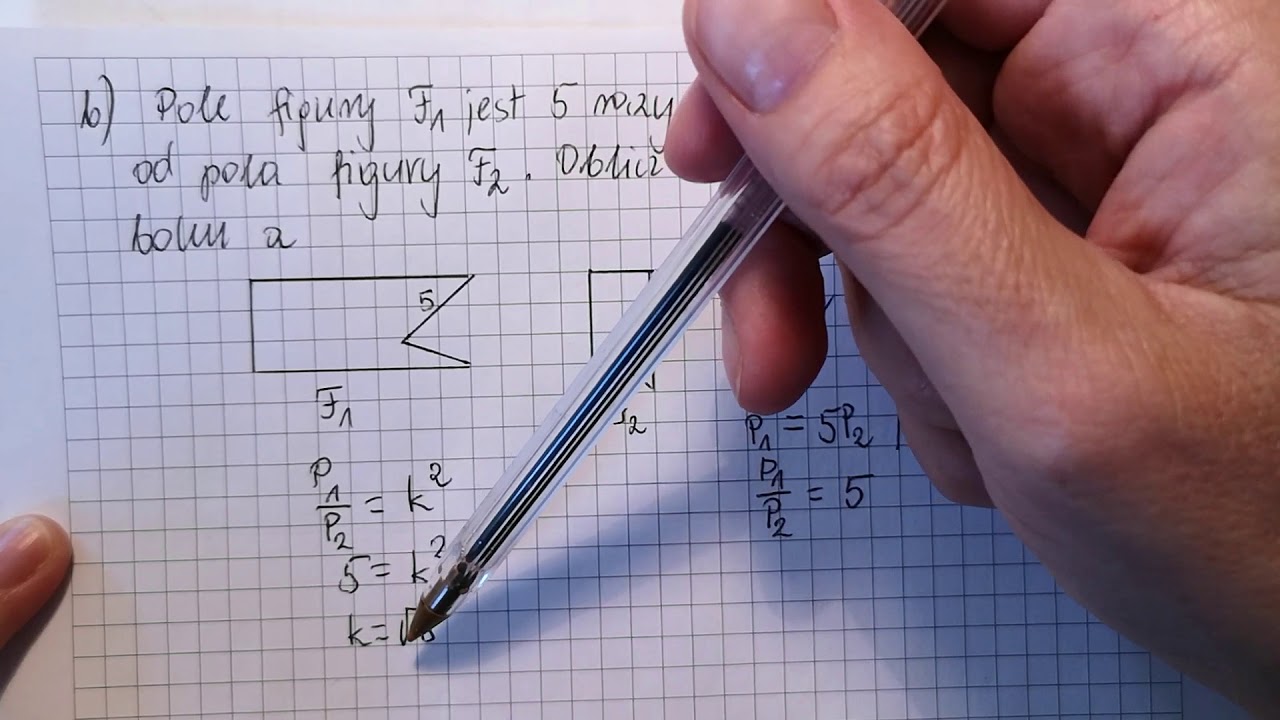 b) Pole figury F₁ jest 5 razy
od pola figury F₂. Oblicz
boku a
5
F₁
P₁/P₂ = k²
5 = k²
k = √5
P₁ = 5P₂
P₁/P₂ = 5